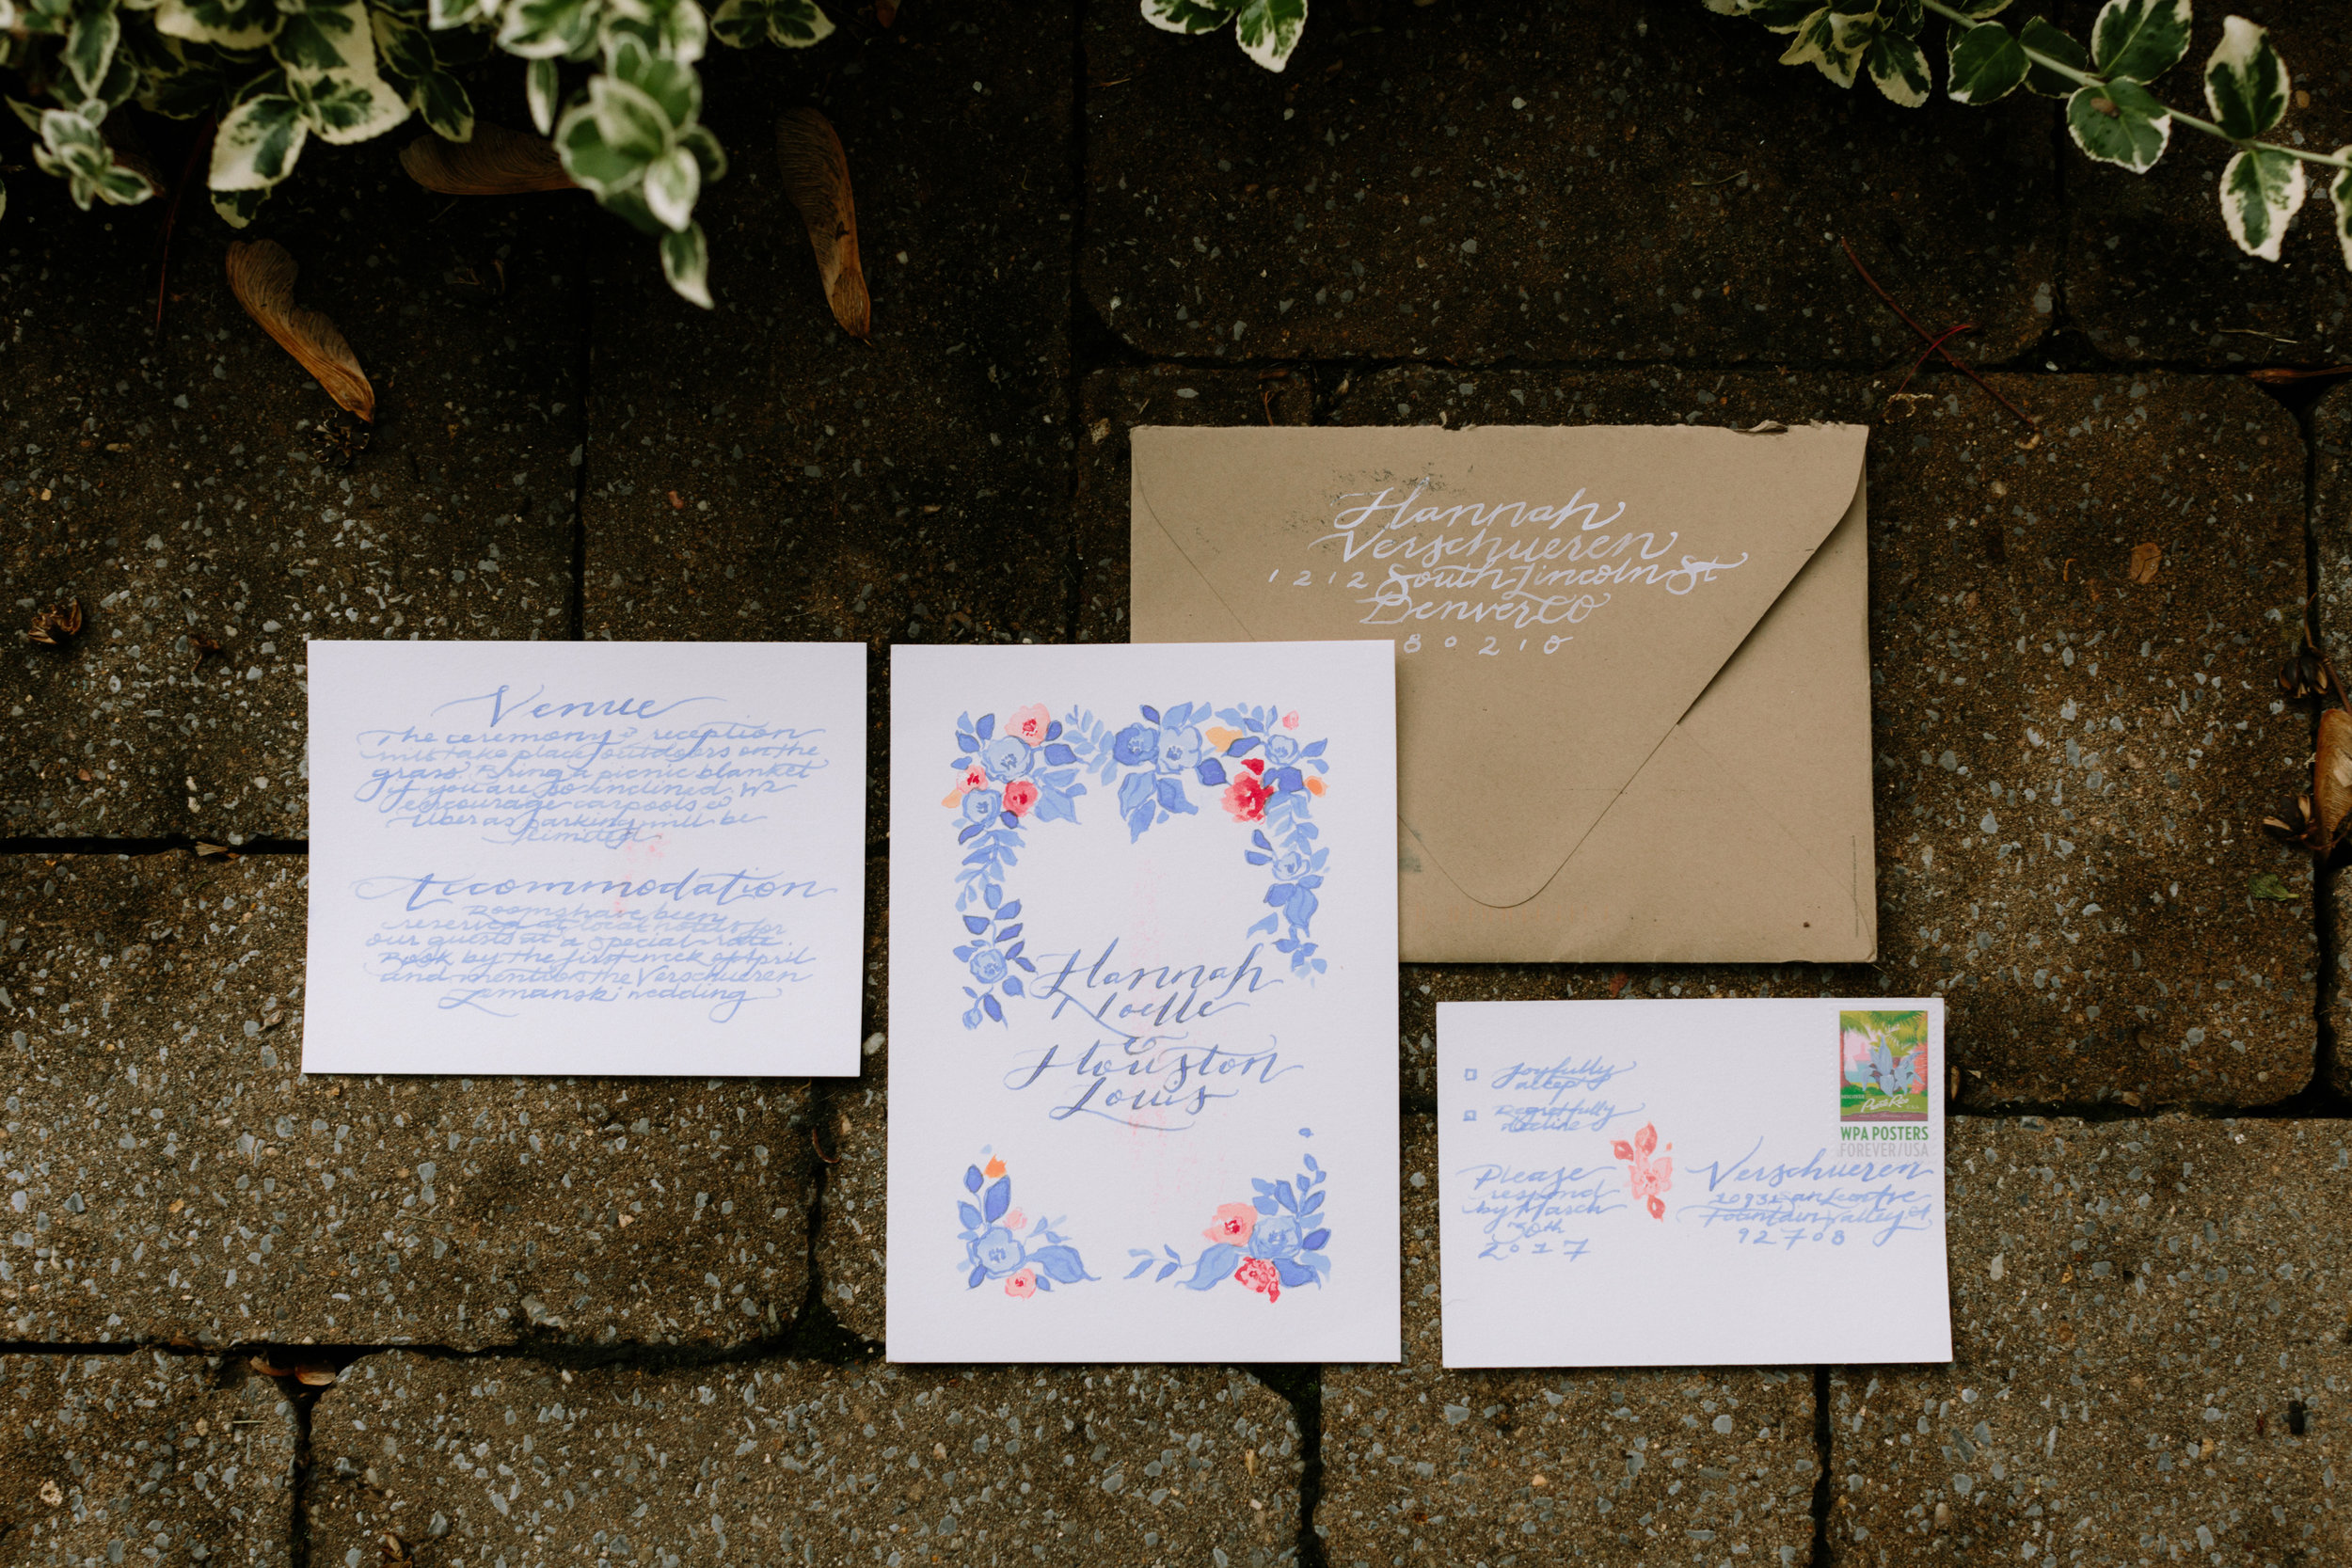 Venue
The ceremony & reception
will take place outdoors on the
grass. Bring a picnic blanket
if you are so inclined. We
encourage carpools &
Uber as parking will be
limited
Accommodation
Rooms have been
reserved at local hotels for
our guests at a special rate.
Book by the first week of April
and mention the Verschueren
Lemanski wedding
Hannah
Noelle
&
Houston
Louis
Hannah
Verschueren
1212 South Lincoln St
Denver CO
80210
Joyfully
accept
Regretfully
decline
Please
respond
by March
30th
2017
Puerto Rico
WPA POSTERS
FOREVER/USA
Verschueren
Fountain Valley
92708